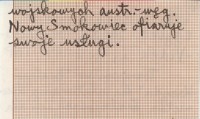 wojskowych austr.-węg.
Nowy Smokowiec ofiaruje
swoje usługi.